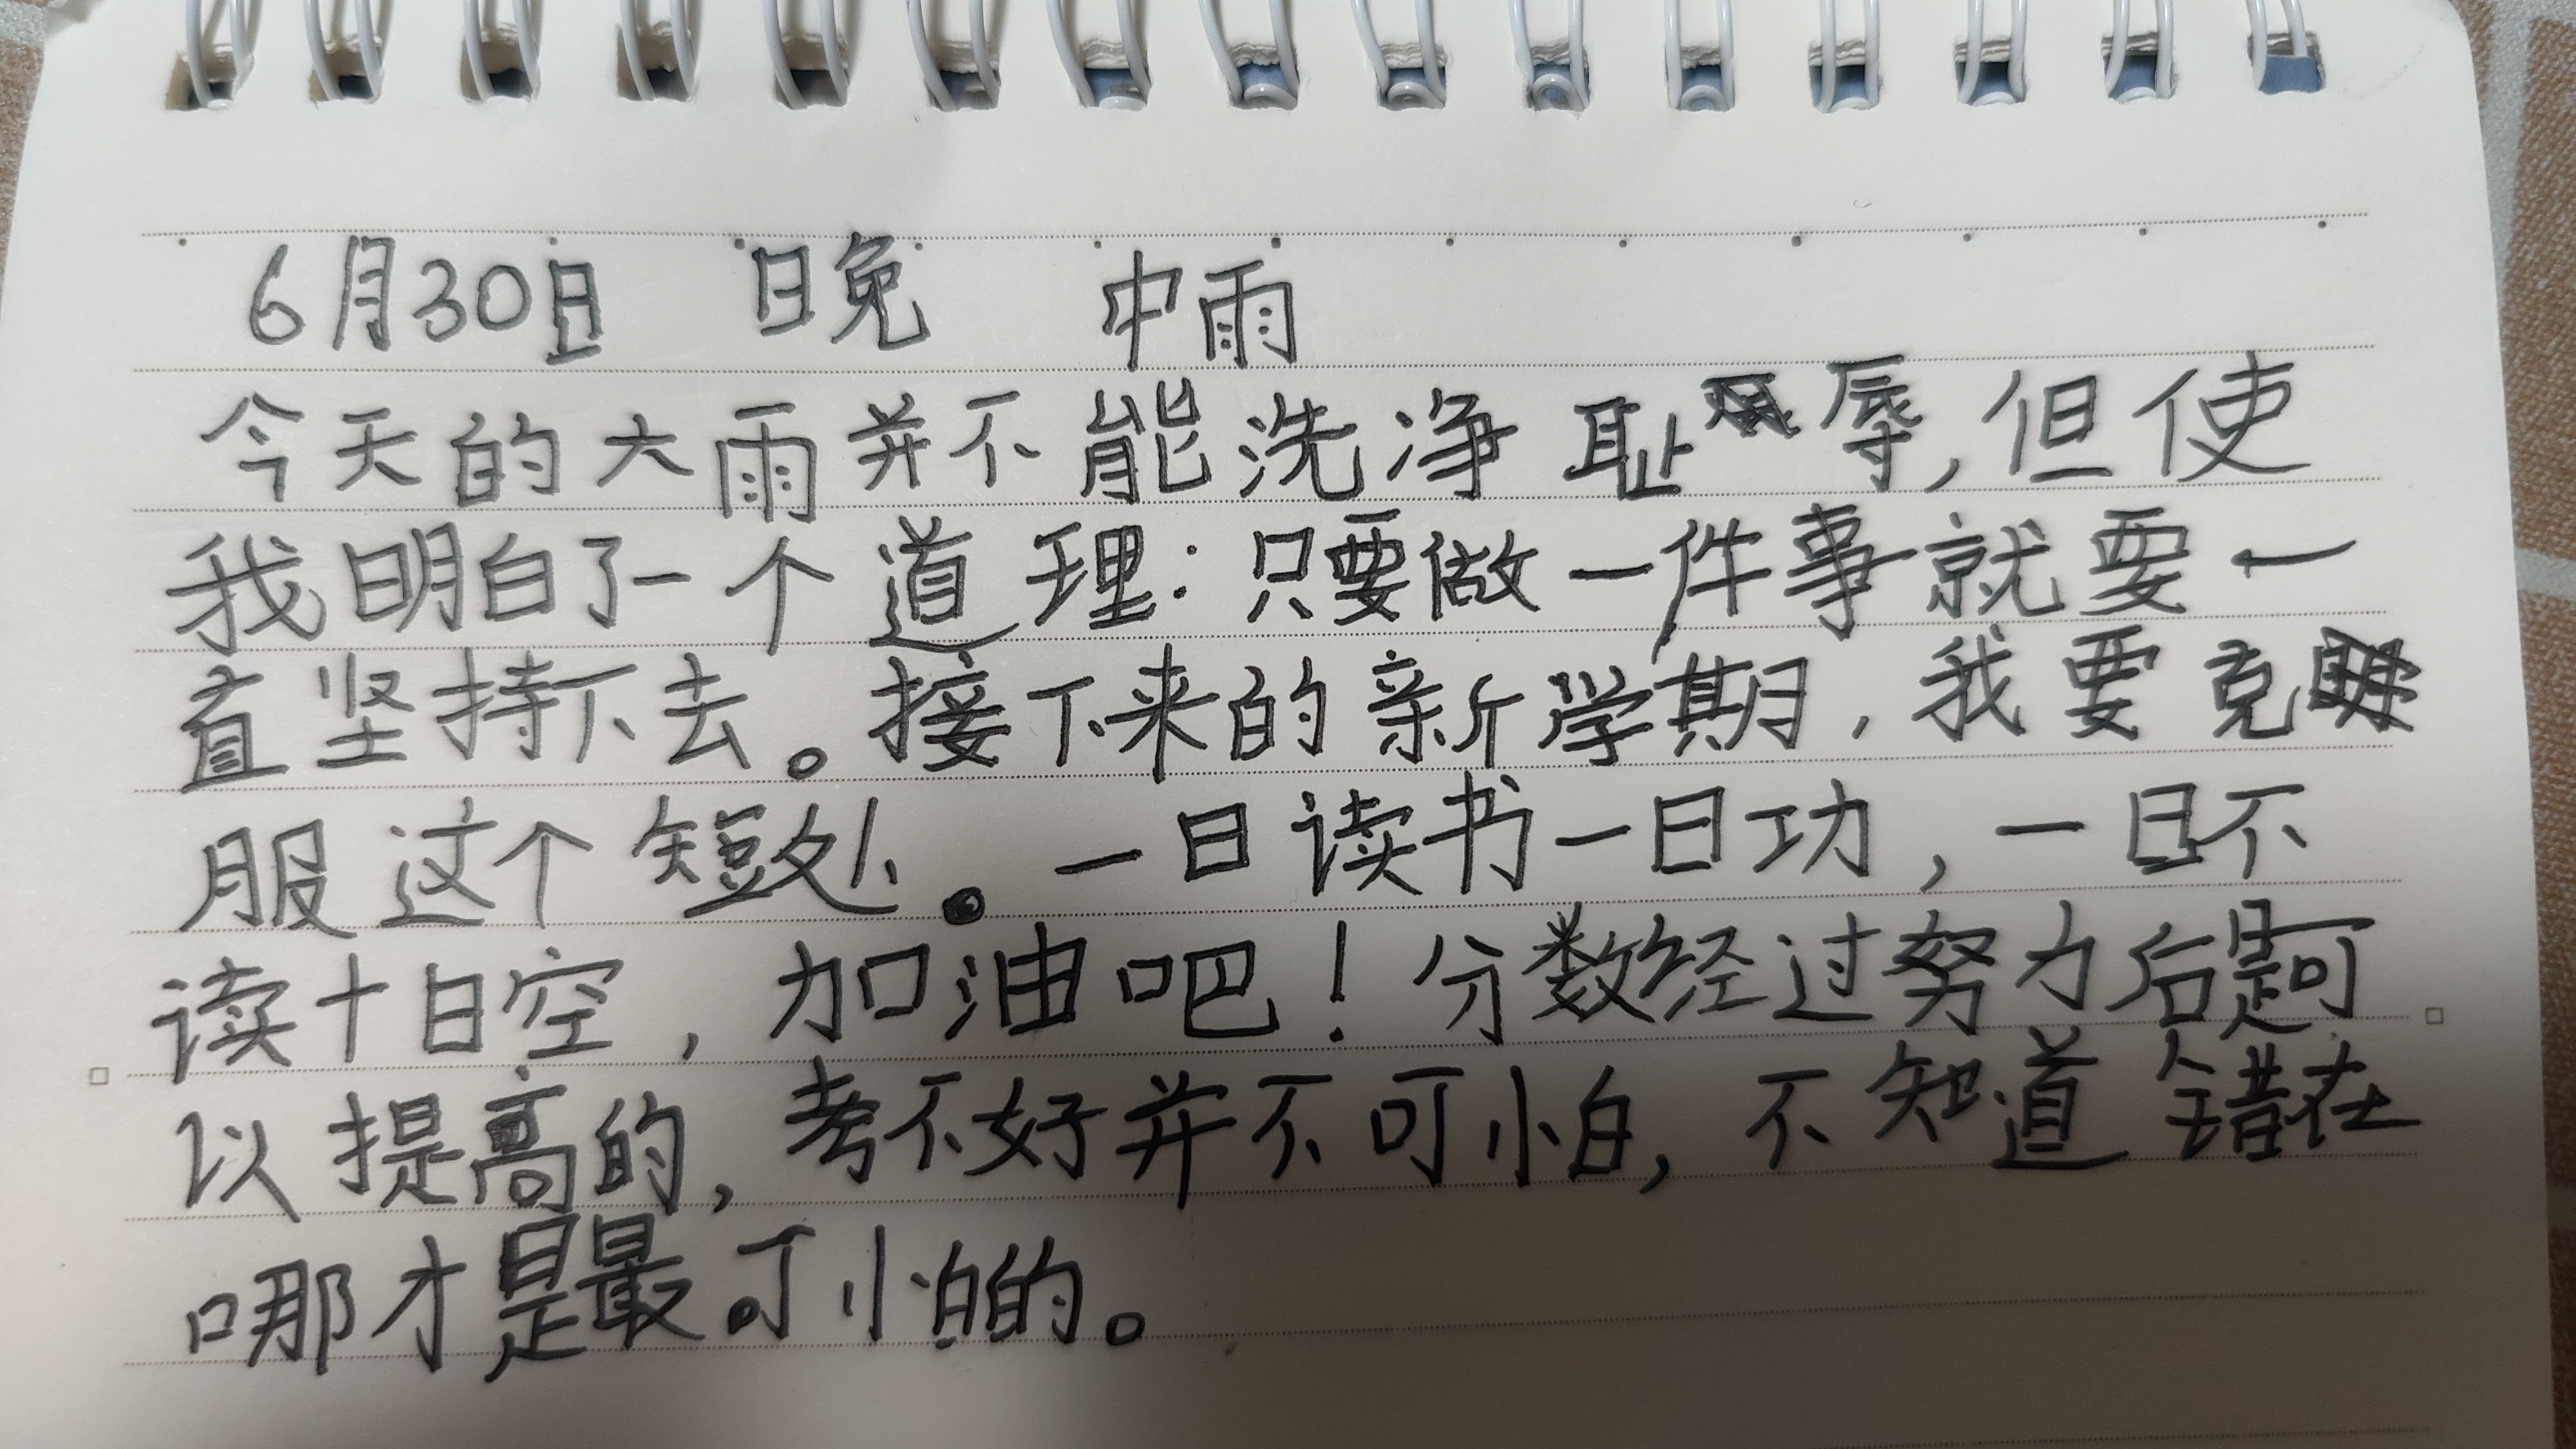 6月30日 日晚 中雨
今天的大雨并不能洗净耻辱,但使
我明白了一个道理:只要做一件事就要一
直坚持下去。接下来的新学期,我要克
服这个短处。一日读书一日功,一日不
读十日空,加油吧!分数经过努力后是可
以提高的,考不好并不可怕,不知道错在
哪才是最可怕的。